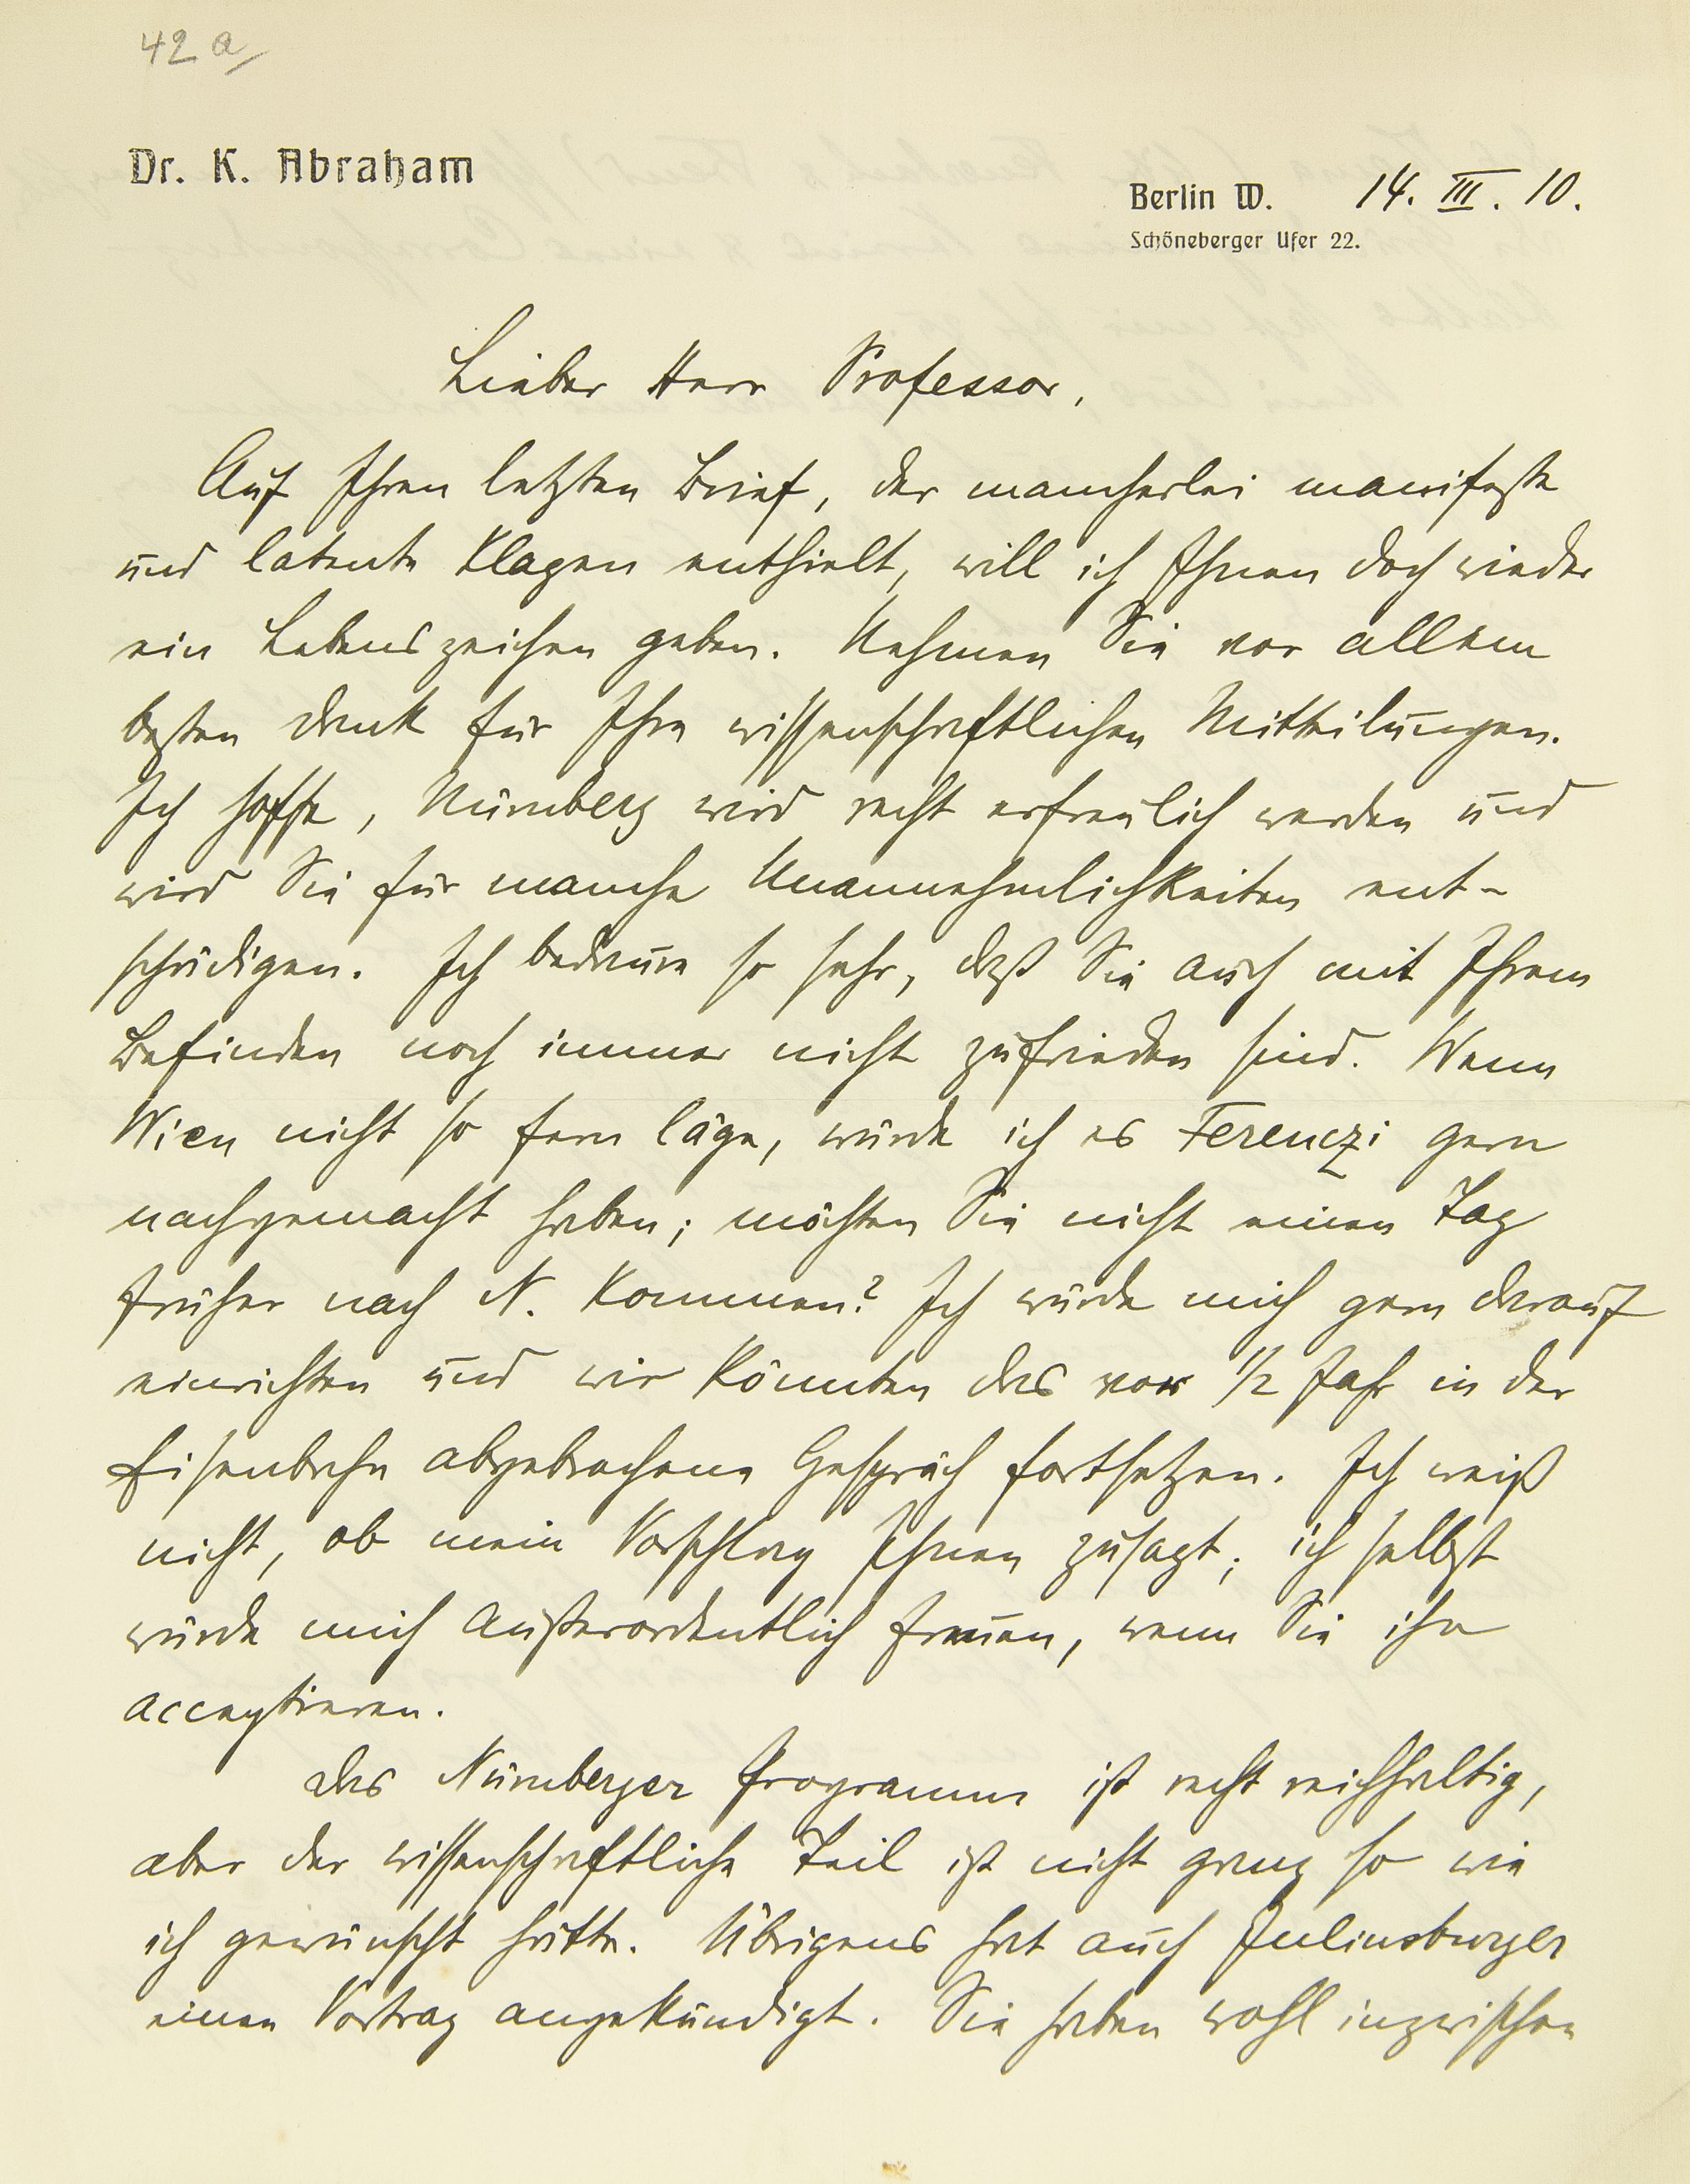 42a
Dr. K. Abraham
Berlin W. 14. III. 10.
Schöneberger Ufer 22.
Lieber Herr Professor,
Auf Ihren letzten Brief, der mancherlei manifeste
und latente Klagen enthielt, will ich Ihnen doch wieder
ein Lebenszeichen geben. Nehmen Sie vor allem
besten Dank für Ihre wissenschaftlichen Mitteilungen.
Ich hoffe, Nürnberg wird recht erfreulich werden und
wird Sie für manche Unannehmlichkeiten ent-
schädigen. Ich bedaure so sehr, daß Sie auch mit Ihrem
Befinden noch immer nicht zufrieden sind. Wenn
Wien nicht so fern läge, würde ich es Ferenczi gern
nachgemacht haben; möchten Sie nicht einen Tag
früher nach N. kommen? Ich würde mich gern darauf
einrichten und wir könnten das vor 1/2 Jahr in der
Eisenbahn abgebrochene Gespräch fortsetzen. Ich weiß
nicht, ob mein Vorschlag Ihnen zusagt; ich selbst
würde mich außerordentlich freuen, wenn Sie ihn
acceptieren.
Das Nürnberger Programm ist recht reichhaltig,
aber der wissenschaftliche Teil ist nicht ganz so wie
ich gewünscht hätte. Übrigens hat auch Juliusburger
einen Vortrag angekündigt. Sie haben wohl inzwischen